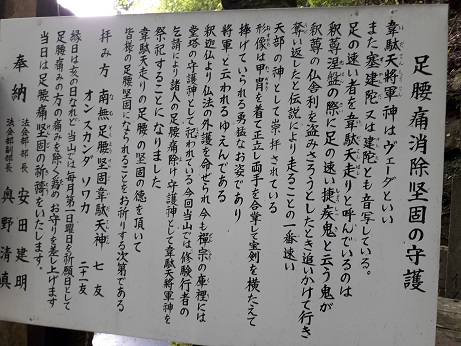 足腰痛消除堅固の守護
韋駄天將軍神はヴェーダといい
また塞建陀又は建陀とも音写している。
足の速い者を韋駄天走りと呼んでいるのは
釈尊涅槃の際に足の速い捷疾鬼と云う鬼が
釈尊の仏舎利を盗みさろうとしたとき追いかけて行き
奪い返したと伝説により走ることの一番速い
天部の神として崇拝されている
形像は甲冑を着て正立し両手を合掌して宝剣を横たえて
捧げていられる勇猛なお姿であり
将軍と云われるゆえんである
釈迦仏より仏法の外護を命せられ今も禅宗の庫裡には
堂塔の守護神として祀われている今回当山では修験行者の
乞請により諸人の足腰痛除け守護神として韋駄天将軍神を
祭祀することになりました
韋駄天走りの足腰の堅固の徳を頂いて
皆様の足腰堅固になられることをお祈りする次第である
拝み方 南無足腰堅固韋駄天神 七反
オン スカンダ ソワカ 二十一反
縁日は亥の日なれど当山では毎月第二日曜日を祈願日として
足腰痛みの方の痛みを除く為めお守りを差し上げます
当日は足腰痛堅固の祈祷をいたします。
奉納 法会部部長 安田建明
法会部副部長 奥野清真